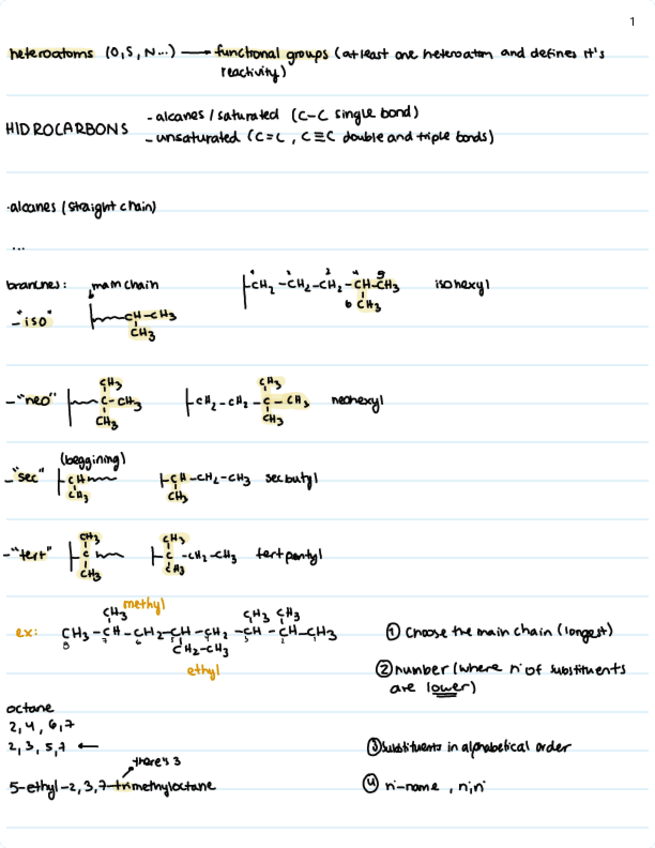 1
heteroatoms (O, S, N...) → functional groups (at least one heteroatom and defines it's
reactivity)
HIDROCARBONS
- alcanes / saturated (C-C single bond)
- unsaturated (C=C, C≡C double and triple bonds)
·alcanes (straight chain)
...
branches:
main chain
- "iso"
CH-CH3
CH3
1 2 3 4 5
CH2-CH2-CH2-CH-CH3
6 CH3
isohexyl
CH3
- "neo"
C-CH3
CH3
CH3
CH2-CH2-C-CH3
CH3
neohexyl
(beggining)
- "sec"
CH
CH3
CH-CH2-CH3
CH3
sec butyl
CH3
- "tert"
C
CH3
CH3
C-CH2-CH3
CH3
tert pentyl
methyl
CH3
CH3 CH3
ex:
CH3-CH-CH2-CH-CH2-CH-CH-CH3
8 7 6
CH2-CH3
ethyl
① Choose the main chain (longest)
② number (where nº of substituents
are lower)
octane
2, 4, 6, 7
2, 3, 5, 7 ←
③ substituents in alphabetical order
there's 3
5-ethyl-2,3,7-trimethyloctane
④ nº-name, nº, nº